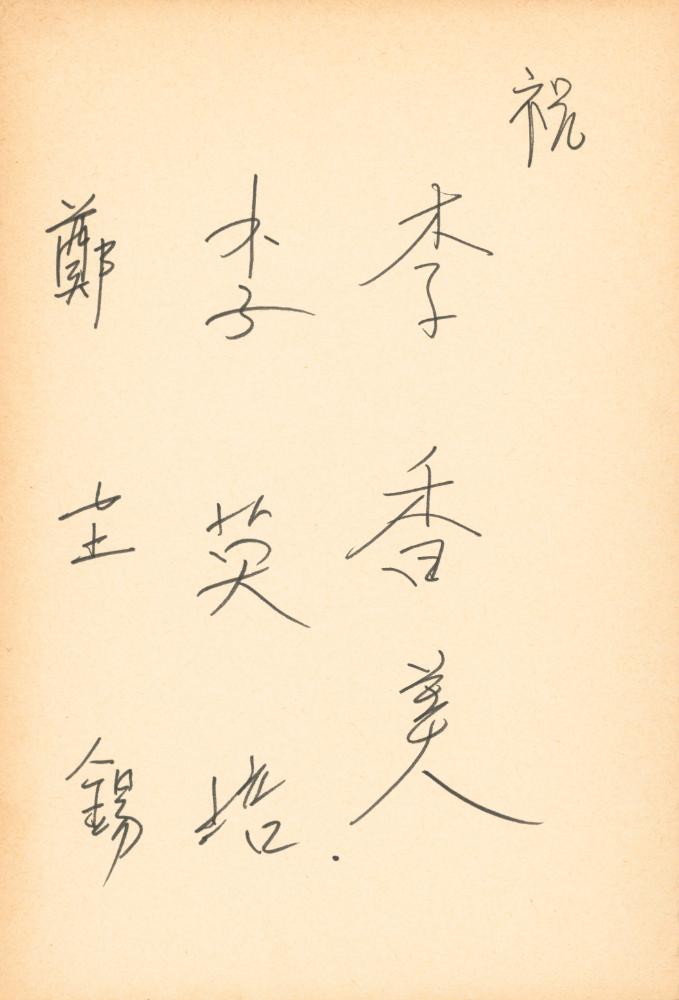 祝
李香美
李英培.
鄭圭錫